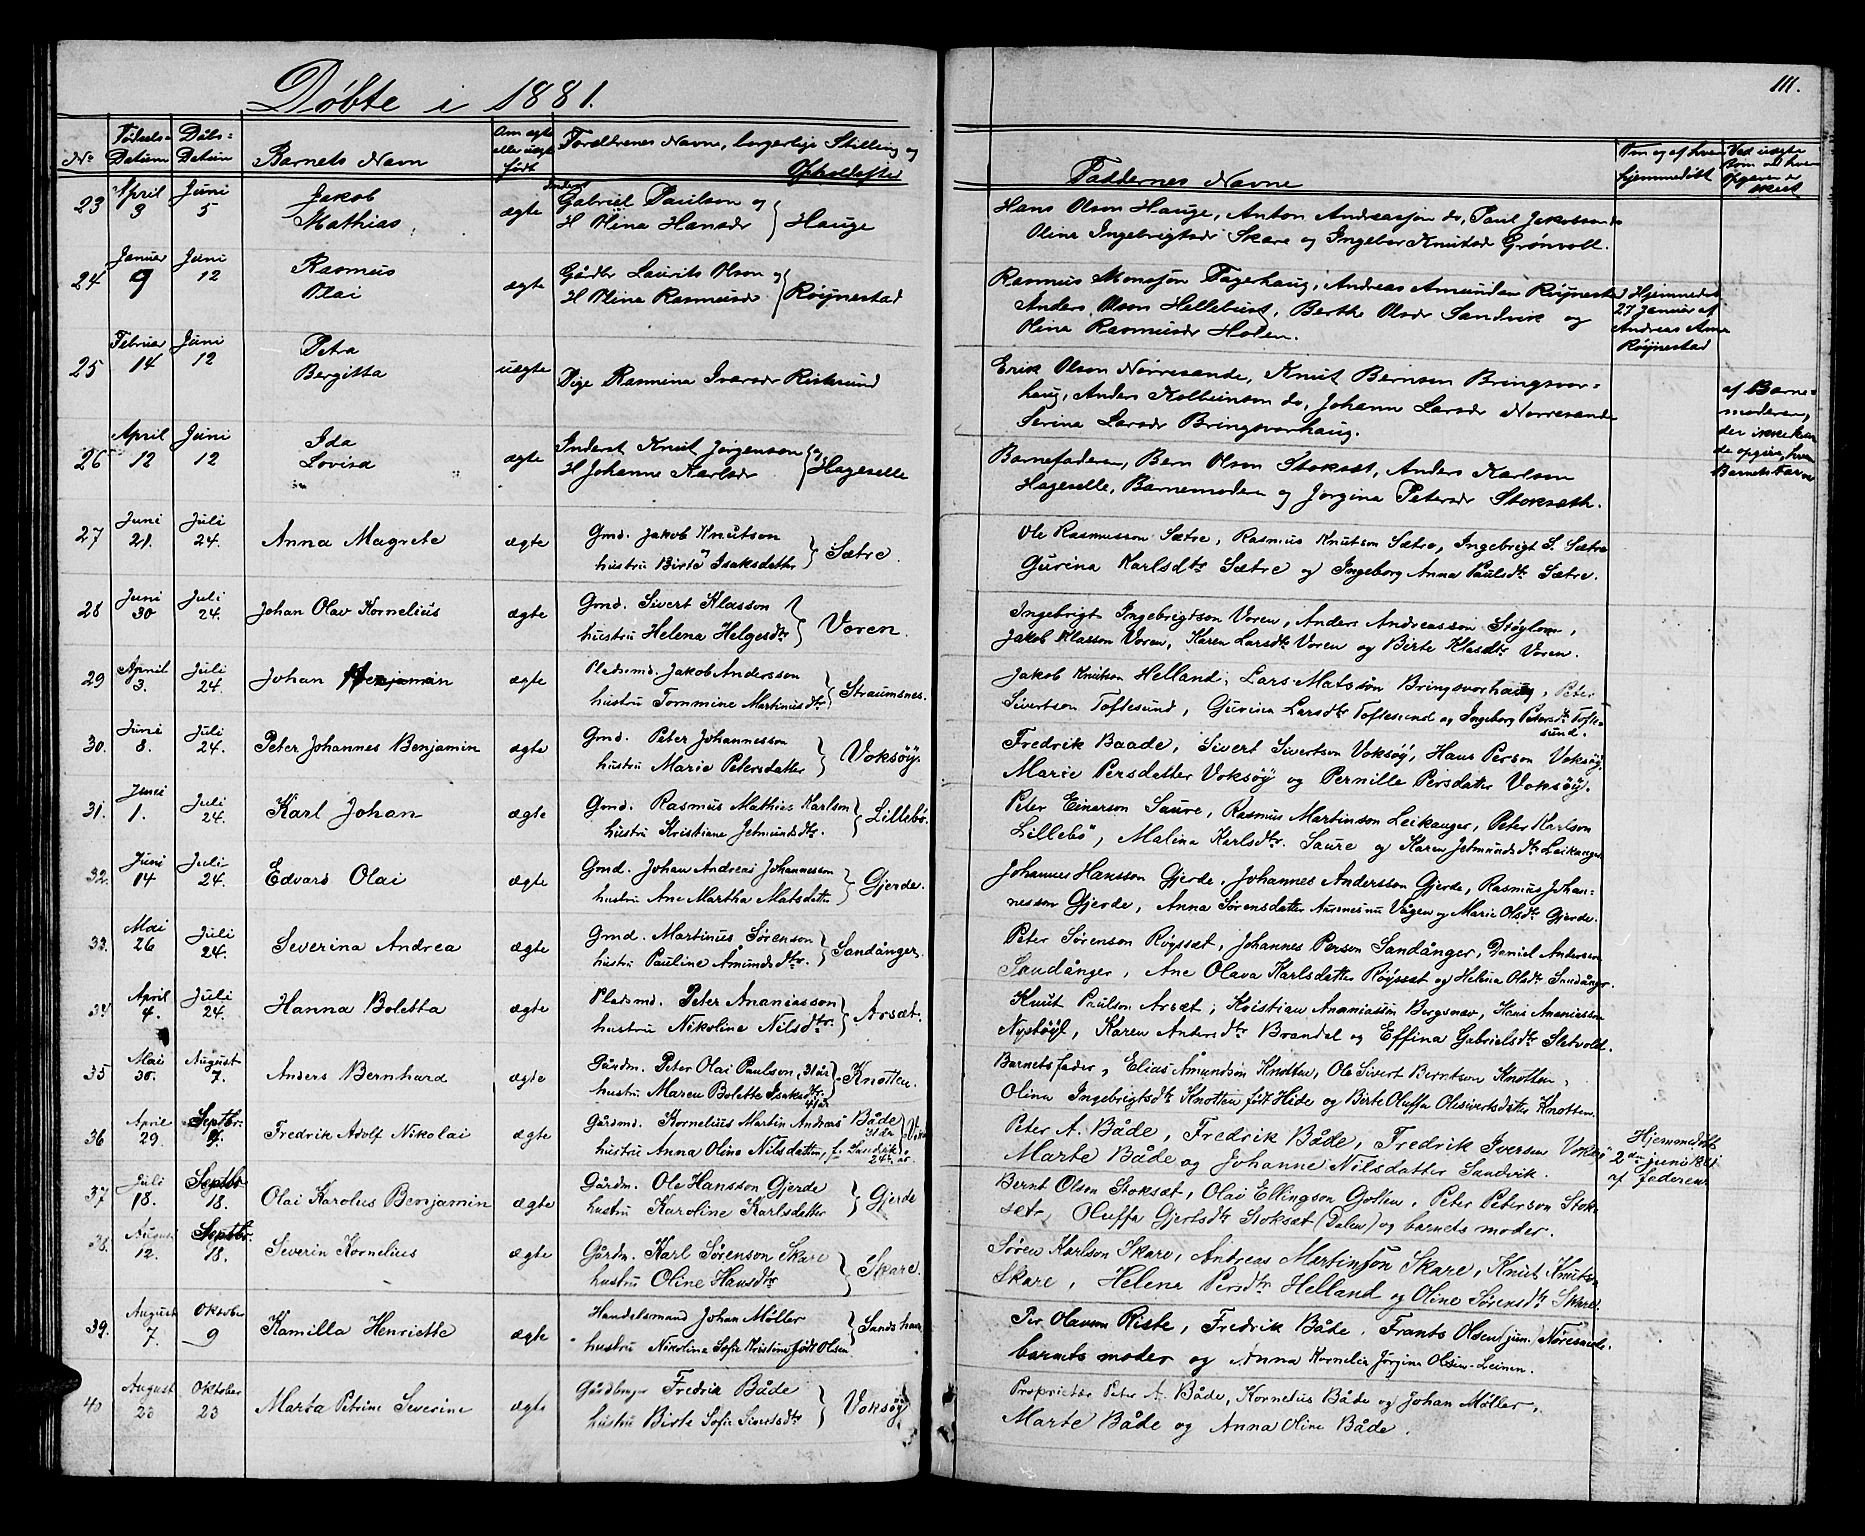 Døbte i 1881.
111.
No Fødsels-Datum Døbs-Datum Barnets Navn Om ægte eller uægte født Forældrenes Navne, borgerlige Stilling og Opholdssted
Faddernes Navne Om og af hvem hjemmedøbt Ved uægte
23 April 3 Juni 5 Jakob Mathias ægte Inderst Gabriel Paulson og H Olina Hansdr Hauge
Hans Olson Hauge, Anton Andreassøn do, Paul Jakobson do
Olina Ingebrigtsdr Skare og Ingebor Knutsdr Grønvoll.
24 Januar 9 Juni 12 Rasmus Olai ægte Gårdbr Laurits Olson og H Olina Rasmusdr Røynestad
Rasmus Monssøn Fagerhaug, Andreas Amundsen Røynestad
Anders Olson Hellebust, Berthe Olsdr Sandvik og
Olina Rasmusdr Holen.
Hjemmedøbt
27 Januar af
Andreas Am
Røynestad
25 Februar 14 Juni 12 Petra Bergitta uægte Pige Rasmina Ivarsdr Ristesund
Erik Olson Nørresande, Knut Bernsen Bringsvor-
haug, Anders Kolbeinson do, Johann Larsdr Nørresande
Serina Larsdr Bringsvorhaug.
af Barne-
moderen,
der ikke kun
de opgive, hvem
Barnets Far var
26 April 12 Juni 12 Ida Lovisa ægte Inderst Knut Jørgenson og H Johanne Karlsdr Hageselle
Barnefaderen, Bern Olson Stokset, Anders Karlson
Hageselle, Barnemoderen og Jørgina Petersdr Stokseth.
27 Juni 21. Juli 24. Anna Magrete ægte Gmd. Jakob Knutson hustru Birte Isaksdatter Sætre.
Ole Rasmusson Sætre, Rasmus Knutson Sætre, Ingebrigt S. Sætre
Gurina Karlsdtr Sætre og Ingeborg Anna Paulsdtr Sætre.
28 Juni 30 Juli 24. Johan Olav Kornelius ægte Gmd. Sivert Klasson hustru Helena Helgesdtr Voren.
Ingebrigt Ingebrigtson Voren, Anders Andreasson Støylom,
Jakob Klasson Voren, Karen Larsdtr Voren og Birte Klasdtr Voren.
29 April 3. Juli 24. Johan Benjamin ægte Pladsmd. Jakob Andersson hustru Tommine Martinusdtr Straumsnes.
Jakob Knutson Helland, Lars Matsson Bringsvorhaug, Peter
Sivertson Toftesund, Gurina Larsdtr Toftesund og Ingeborg Petersdtr Tofte-
sund.
30. Juni 8. Juli 24. Peter Johannes Benjamin ægte Gmd. Peter Johannesson hustru Marie Petersdatter Voksøy.
Fredrik Baade, Sivert Sivertson Voksøy, Hans Person Voksøy,
Marie Persdatter Voksøy og Pernille Persdatter Voksøy.
31. Juni 1. Juli 24. Karl Johan ægte Gmd. Rasmus Mathias Karlson hustru Kristiane Jetmundsdtr. Lillebø.
Peter Einarson Saure, Rasmus Martinson Leikanger, Peter Karlson
Lillebø, Malina Karlsdtr. Saure og Karen Jetmundsdtr Leikanger
32. Juni 14 Juli 24. Edvard Olai ægte Gmd. Johan Andreas Johannesson hustru Ane Martha Matsdatter Gjerde.
Johannes Hansson Gjerde, Johannes Andersson Gjerde, Rasmus Johan-
nesson Gjerde, Anna Sørensdatter Aurnesnu Vågen og Marie Olsdtr Gjerde.
33. Mai 26 Juli 24. Severina Andrea ægte Gmd. Martinus Sørenson hustru Pauline Amundsdtr. Sandånger.
Peter Sørenson Røysæt, Johannes Person Sandånger, Daniel Anderson
Sandånger, Ane Olava Karlsdatter Røysæt og Helena Olsdtr Sandånger.
34 April 4. Juli 24. Hanna Boletta ægte Pladsmd. Peter Ananiasson hustru Nikoline Nilsdtr. Arsæt.
Knut Paulson Arsæt, Kristian Ananiasson Bergsnev, Hans Ananiasson
Nystøyl, Karen Andersdtr Brandal og Effina Gabrielsdtr Sletvold.
35 Mai 30. August 7. Anders Bernhard ægte Gårdm. Peter Olai Paulson, 31 år hustru Maren Bolette Isaksdtr 41 år Knotten.
Barnets fader, Elias Amundson Knotten, Ole Sivert Berntson Knotten,
Olina Ingebrigtsdtr Knotten født Hide og Birte Oluffa Olesivertsdatter Knotten.
36 April 29. Septbr. 9. Fredrik Adolf Nikolai ægte Gårdmd. Kornelius Martin Andreas Både 31 år hustru Anna Oline Nilsdatter, f. Sandvik 24 år
Peter A. Både, Fredrik Både, Fredrik Iversen Voksøy
Marte Både og Johanne Nilsdatter Sandvik.
Hjemmedøbt
2den juni 1881
af faderen
37 Juli 18. Septbr 18. Olai Karolus Benjamin ægte Gårdm. Ole Hansson Gjerde hustru Karoline Karlsdatter Gjerde
Bernt Olson Stoksæt, Olai Ellingson Gotten, Peter Peterson Stok-
sæt, Oluffa Gjertsdtr Stoksæt (Dalen) og barnets moder.
38. August 12. Septbr. 18. Severin Kornelius ægte Gårdm. Karl Sørenson Skare hustru Oline Hansdtr Skare.
Søren Karlson Skare, Andreas Martinson Skare, Knut Knutson
Skare, Helene Persdtr Helland og Oline Sørensdtr Skare.
39. August 7. Oktober 9 Kamilla Henriette ægte Handelsmand Johan Møller hustru Nikolina Sofie Kristine født Olsen Sandshavn
Per Olavson Riste, Fredrik Både, Frants Olsen (jun.) Nøresande.
barnets moder og Anna Kornelia Jørgine Olsen-Leinen.
40 August 23 Oktober 23 Marta Petrine Severine ægte Gårdbruger Fredrik Både hustru Birte Sofie Sivertsdtr Voksøy
Proprietær Peter A. Både, Kornelius Både og Johan Møller,
Marte Både og Anna Oline Både.